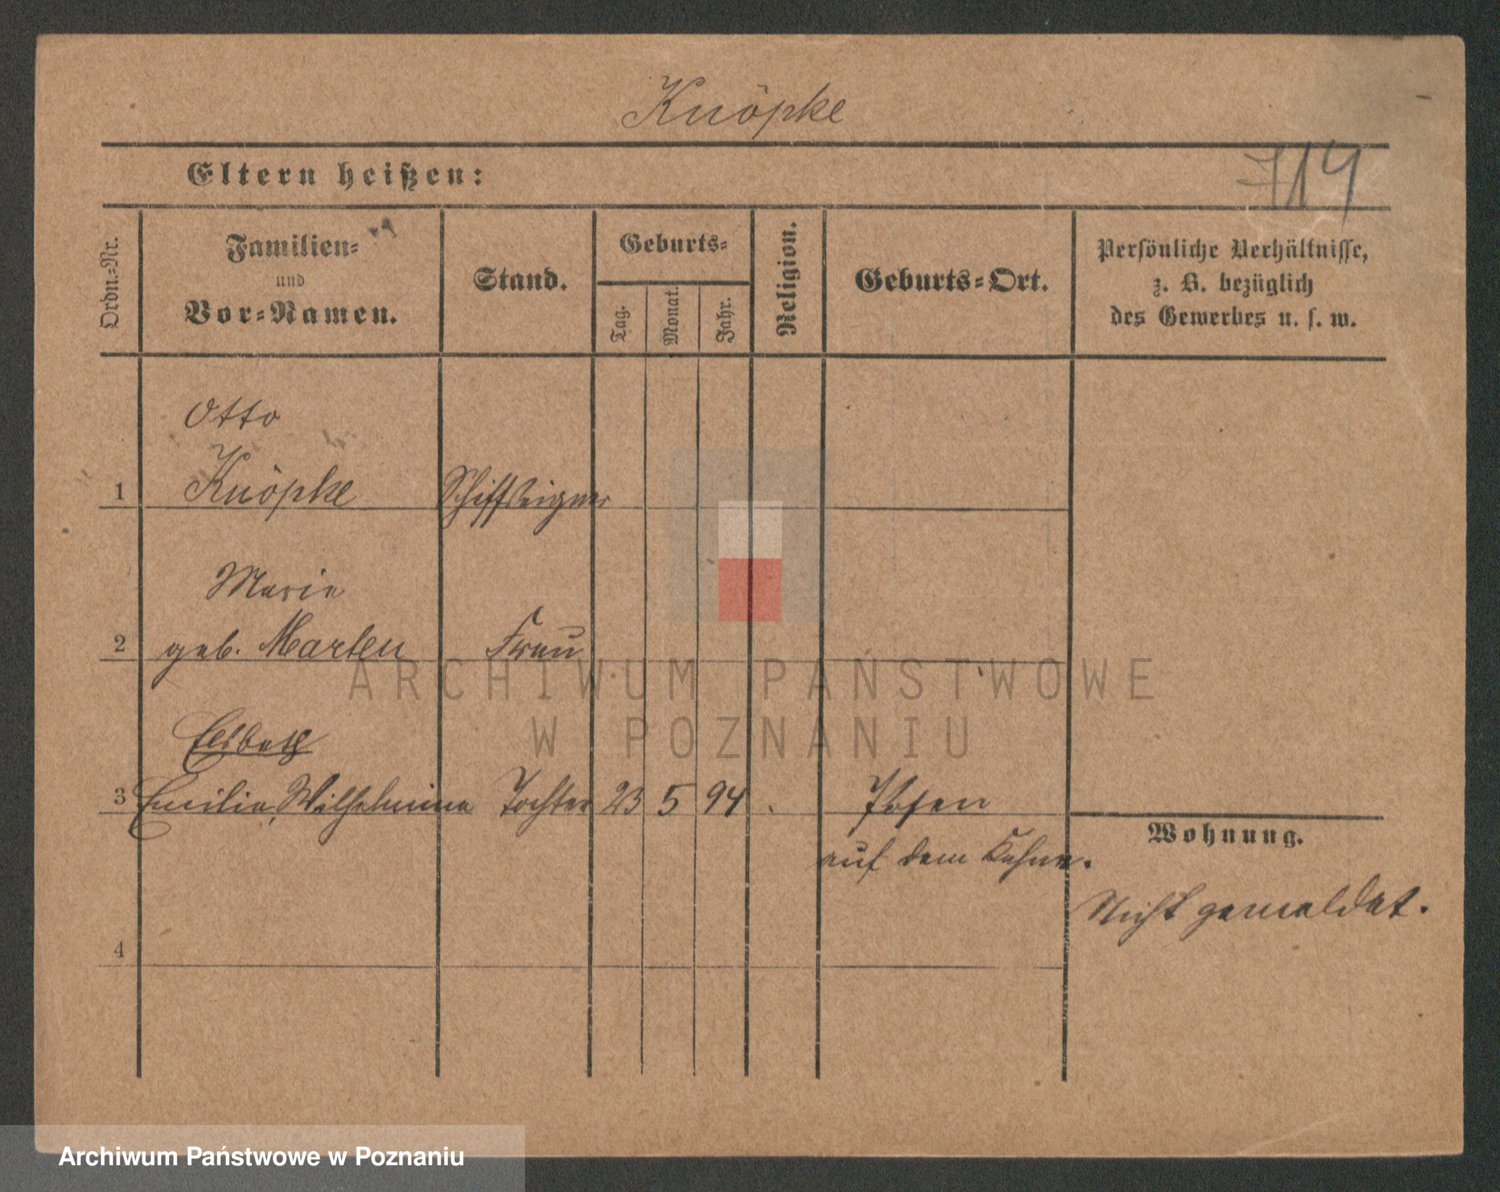 Knöpke
719
Eltern heißen:
Ordn.=Nr.
Familien=
und
Vor=Namen.
Stand.
Geburts=
Tag.
Monat.
Jahr.
Religion.
Geburts=Ort.
Persönliche Verhältnisse,
z. B. bezüglich
des Gewerbes u. s. w.
Otto
1 Knöpke Schiffseigner
Marie
2 geb. Marten Frau
Elsbeth
3 Emilie, Wilhelmine Tochter 23 5 94 Posen
auf dem Kahne.
Wohnung.
Nicht gemeldet.
4
ARCHIWUM PAŃSTWOWE
W POZNANIU
Archiwum Państwowe w Poznaniu